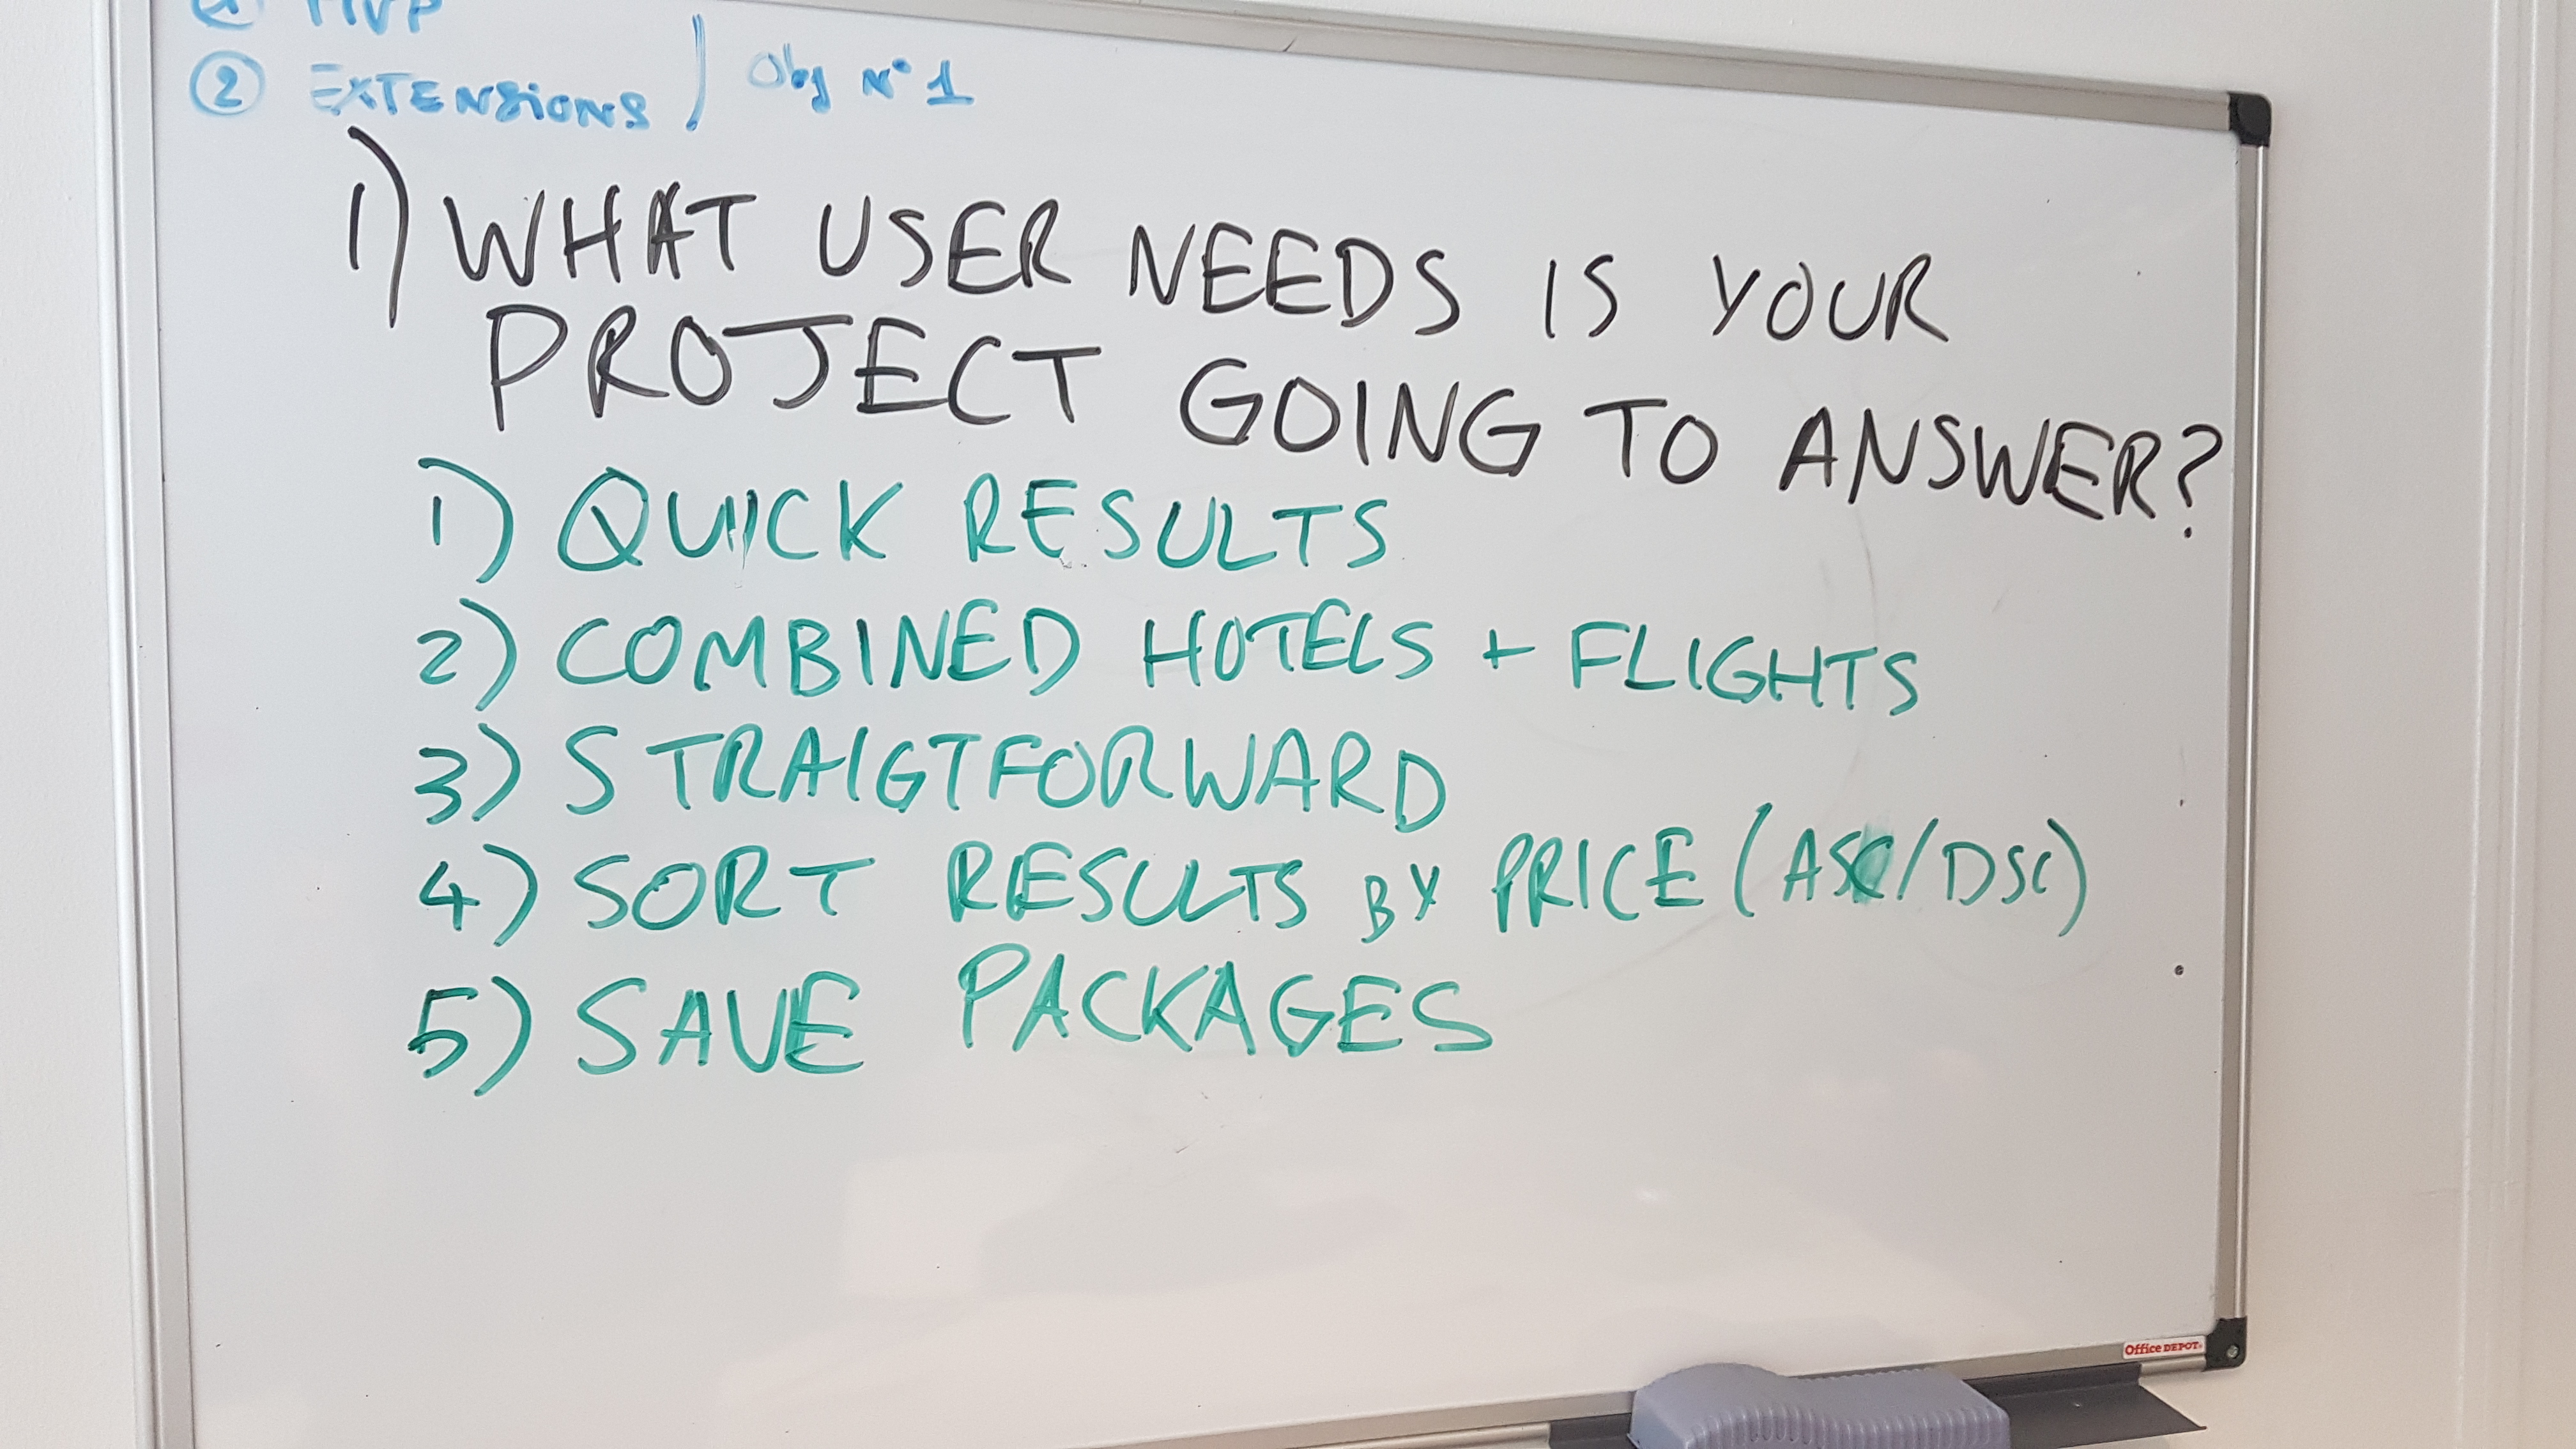 ① MVP
② EXTENSIONS ) Obj N° 1
1) WHAT USER NEEDS IS YOUR
PROJECT GOING TO ANSWER?
1) QUICK RESULTS
2) COMBINED HOTELS + FLIGHTS
3) STRAIGTFORWARD
4) SORT RESULTS BY PRICE (ASC/DSC)
5) SAVE PACKAGES
Office DEPOT